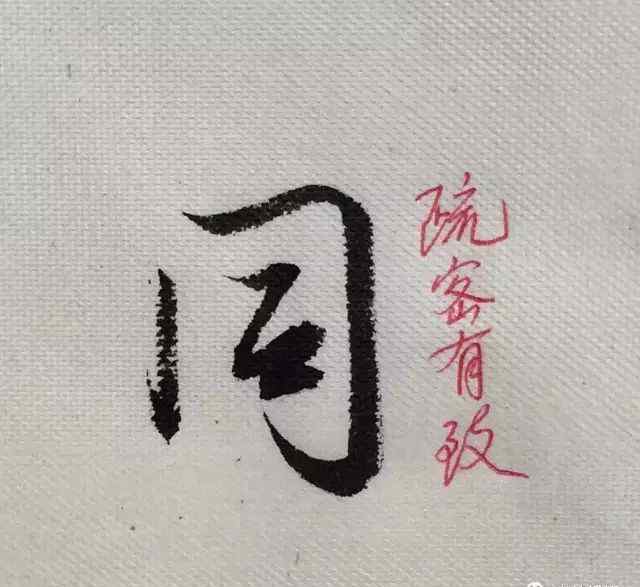 同
疏密有致